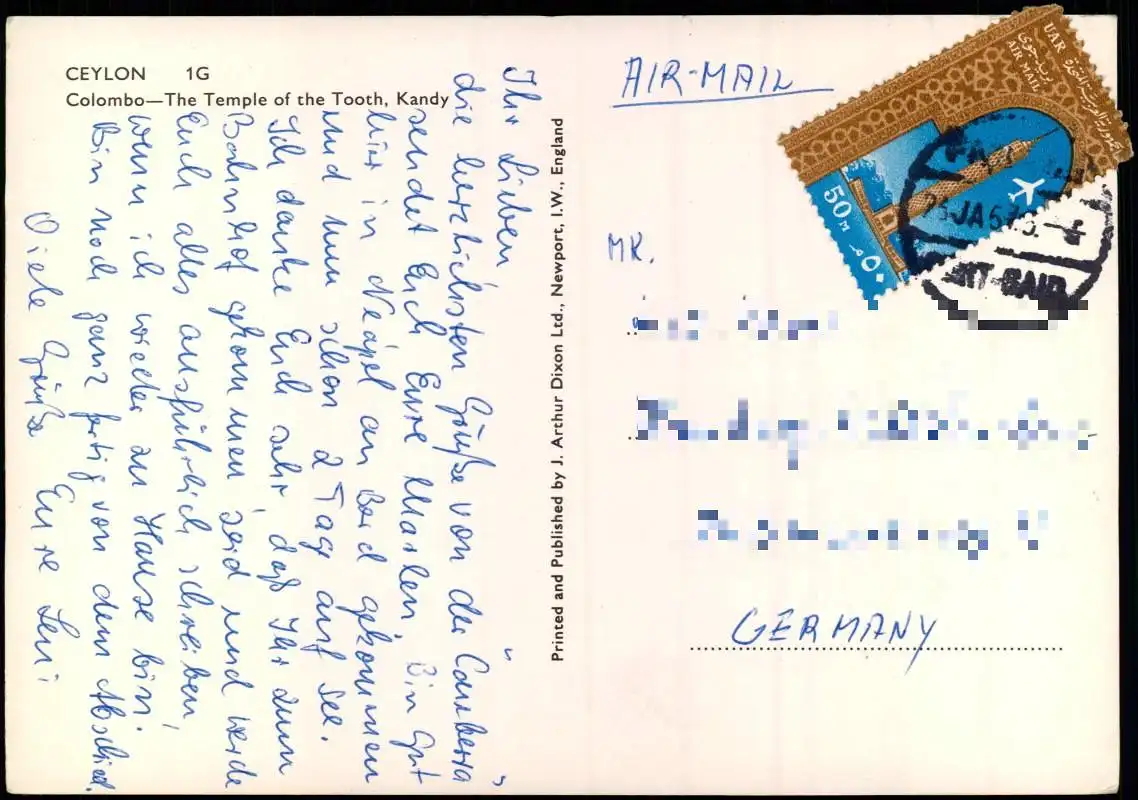 CEYLON 1G
Colombo—The Temple of the Tooth, Kandy
Ihr Lieben
die herzlichsten Grüße von der „Canberra“
sendet Euch Eure Marlen. Bin gut
hier in Neapel an Bord gekommen
und nun schon 2 Tage auf See.
Ich danke Euch sehr, daß Ihr zum
Bahnhof gekommen seid und werde
Euch alles ausführlich schreiben,
wenn ich wieder zu Hause bin.
Bin noch ganz fertig von dem Abschied.
Viele Grüße Eure Leni
Printed and Published by J. Arthur Dixon Ltd., Newport, I.W., England
AIR-MAIL
UAR
بريد جوى
AIR MAIL
الجمهورية العربية المتحدة
50 M
٥٠ م
JA 67
RT-SAID
MR.
GERMANY